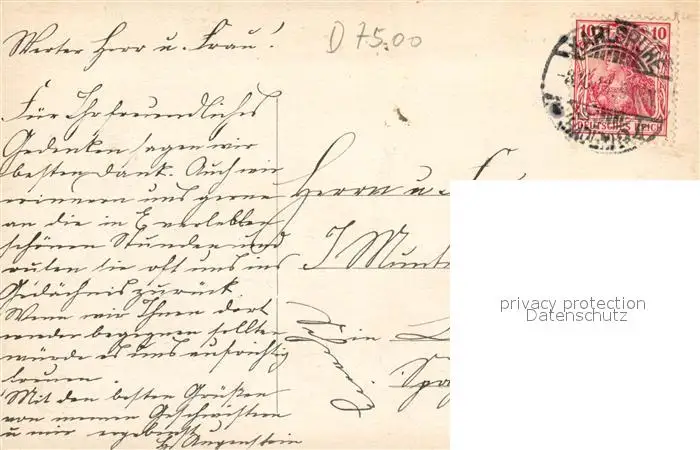 Werter Herr u. Frau!
D 75.00
Für Ihr freundliches
Gedenken sagen wir
besten Dank. Auch wir
erinnern uns gerne
an die in E verlebten
schönen Stunden und
rufen sie oft uns ins
Gedächtnis zurück.
Wenn wir Ihnen dort
wieder begegnen sollten
würde es uns aufrichtig
freuen.
Mit den besten Grüßen
von meinen Geschwistern
u mir ergebenst
Augenstein
10 10
KARLSRUHE
DEUTSCHES REICH
Herrn u.
J Munt
in
Schweiz
privacy protection
Datenschutz